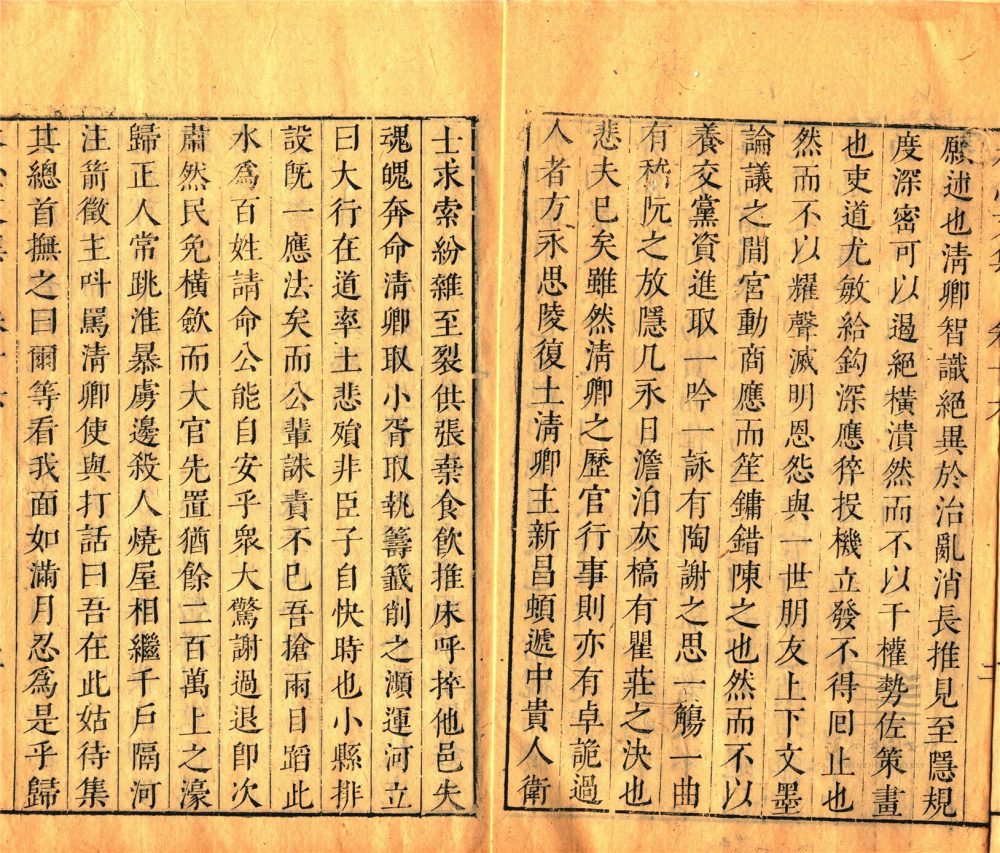 願述也淸卿智識絕異於治亂消長推見至隱規
度深密可以遏絕橫潰然而不以干權勢佐策畫
也吏道尤敏給鈎深應猝投機立發不得囘止也
然而不以耀聲滅明恩怨與一世朋友上下文墨
論議之間宮動商應而笙鏞錯陳之也然而不以
養交黨資進取一吟一詠有陶謝之思一觴一曲
有嵇阮之放隱几永日澹泊灰槁有瞿莊之決也
悲夫已矣雖然淸卿之歷官行事則亦有卓詭過
人者方永思陵復土淸卿主新昌頓遞中貴人衛
士求索紛雜至裂供張棄食飮推床呼捽他邑失
魂魄奔命淸卿取小胥取執籌籖削之瀕運河立
曰大行在道率土悲殞非臣子自快時也小縣排
設旣一應法矣而公輩誅責不已吾搶雨日蹈此
水爲百姓請命公能自安乎衆大驚謝過退卽次
肅然民免橫斂而大官先置猶餘二百萬上之濠
歸正人常跳淮暴虜邊殺人燒屋相繼千戶隔河
注箭徵主呌罵淸卿使與打話曰吾在此姑待集
其總首撫之曰爾等看我面如滿月忍爲是乎歸